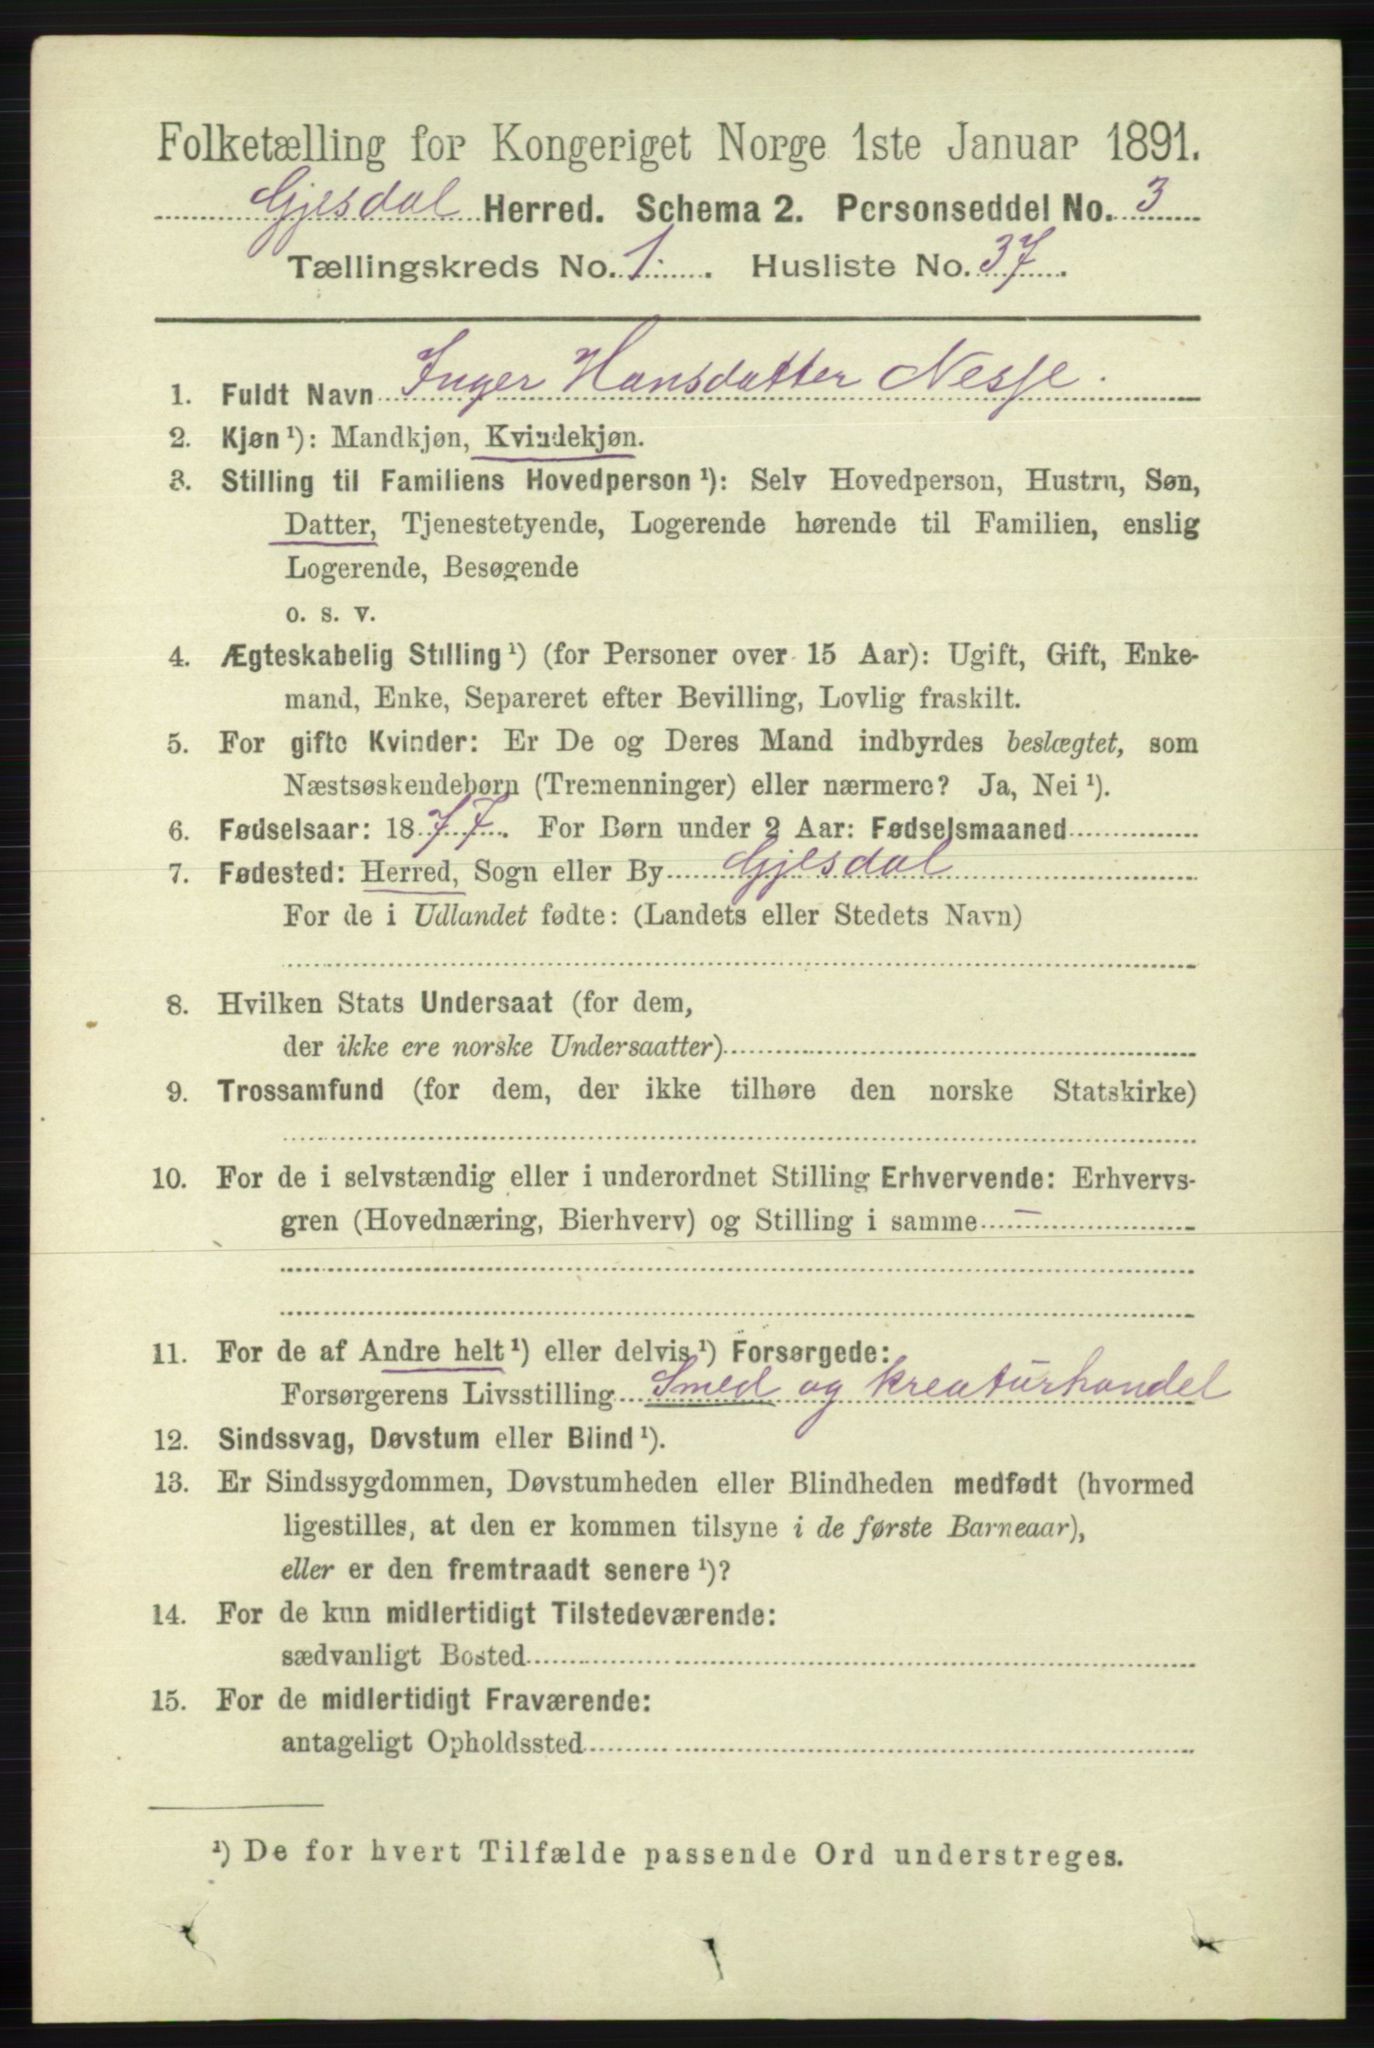 Folketælling for Kongeriget Norge 1ste Januar 1891.
Gjesdal Herred. Schema 2. Personseddel No. 3
Tællingskreds No. 1. Husliste No. 37.
1. Fuldt Navn Inger Hansdatter Nesje.
2. Kjøn ¹): Mandkjøn, Kvindekjøn.
3. Stilling til Familiens Hovedperson ¹): Selv Hovedperson, Hustru, Søn,
Datter, Tjenestetyende, Logerende hørende til Familien, enslig
Logerende, Besøgende
o. s. v.
4. Ægteskabelig Stilling ¹) (for Personer over 15 Aar): Ugift, Gift, Enke-
mand, Enke, Separeret efter Bevilling, Lovlig fraskilt.
5. For gifte Kvinder: Er De og Deres Mand indbyrdes beslægtet, som
Næstsøskendebørn (Tremenninger) eller nærmere? Ja, Nei ¹).
6. Fødselsaar: 1877. For Børn under 2 Aar: Fødselsmaaned
7. Fødested: Herred, Sogn eller By Gjesdal
For de i Udlandet fødte: (Landets eller Stedets Navn)
8. Hvilken Stats Undersaat (for dem,
der ikke ere norske Undersaatter)
9. Trossamfund (for dem, der ikke tilhøre den norske Statskirke)
10. For de i selvstændig eller i underordnet Stilling Erhvervende: Erhvervs-
gren (Hovednæring, Bierhverv) og Stilling i samme —
11. For de af Andre helt ¹) eller delvis ¹) Forsørgede:
Forsørgerens Livsstilling Smed og kreaturhandel
12. Sindssvag, Døvstum eller Blind ¹).
13. Er Sindssygdommen, Døvstumheden eller Blindheden medfødt (hvormed
ligestilles, at den er kommen tilsyne i de første Barneaar),
eller er den fremtraadt senere ¹)?
14. For de kun midlertidigt Tilstedeværende:
sædvanligt Bosted
15. For de midlertidigt Fraværende:
antageligt Opholdssted
¹) De for hvert Tilfælde passende Ord understreges.